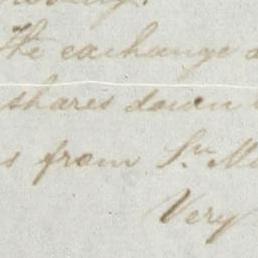 The exchange
shares down
from Sr. M
Very